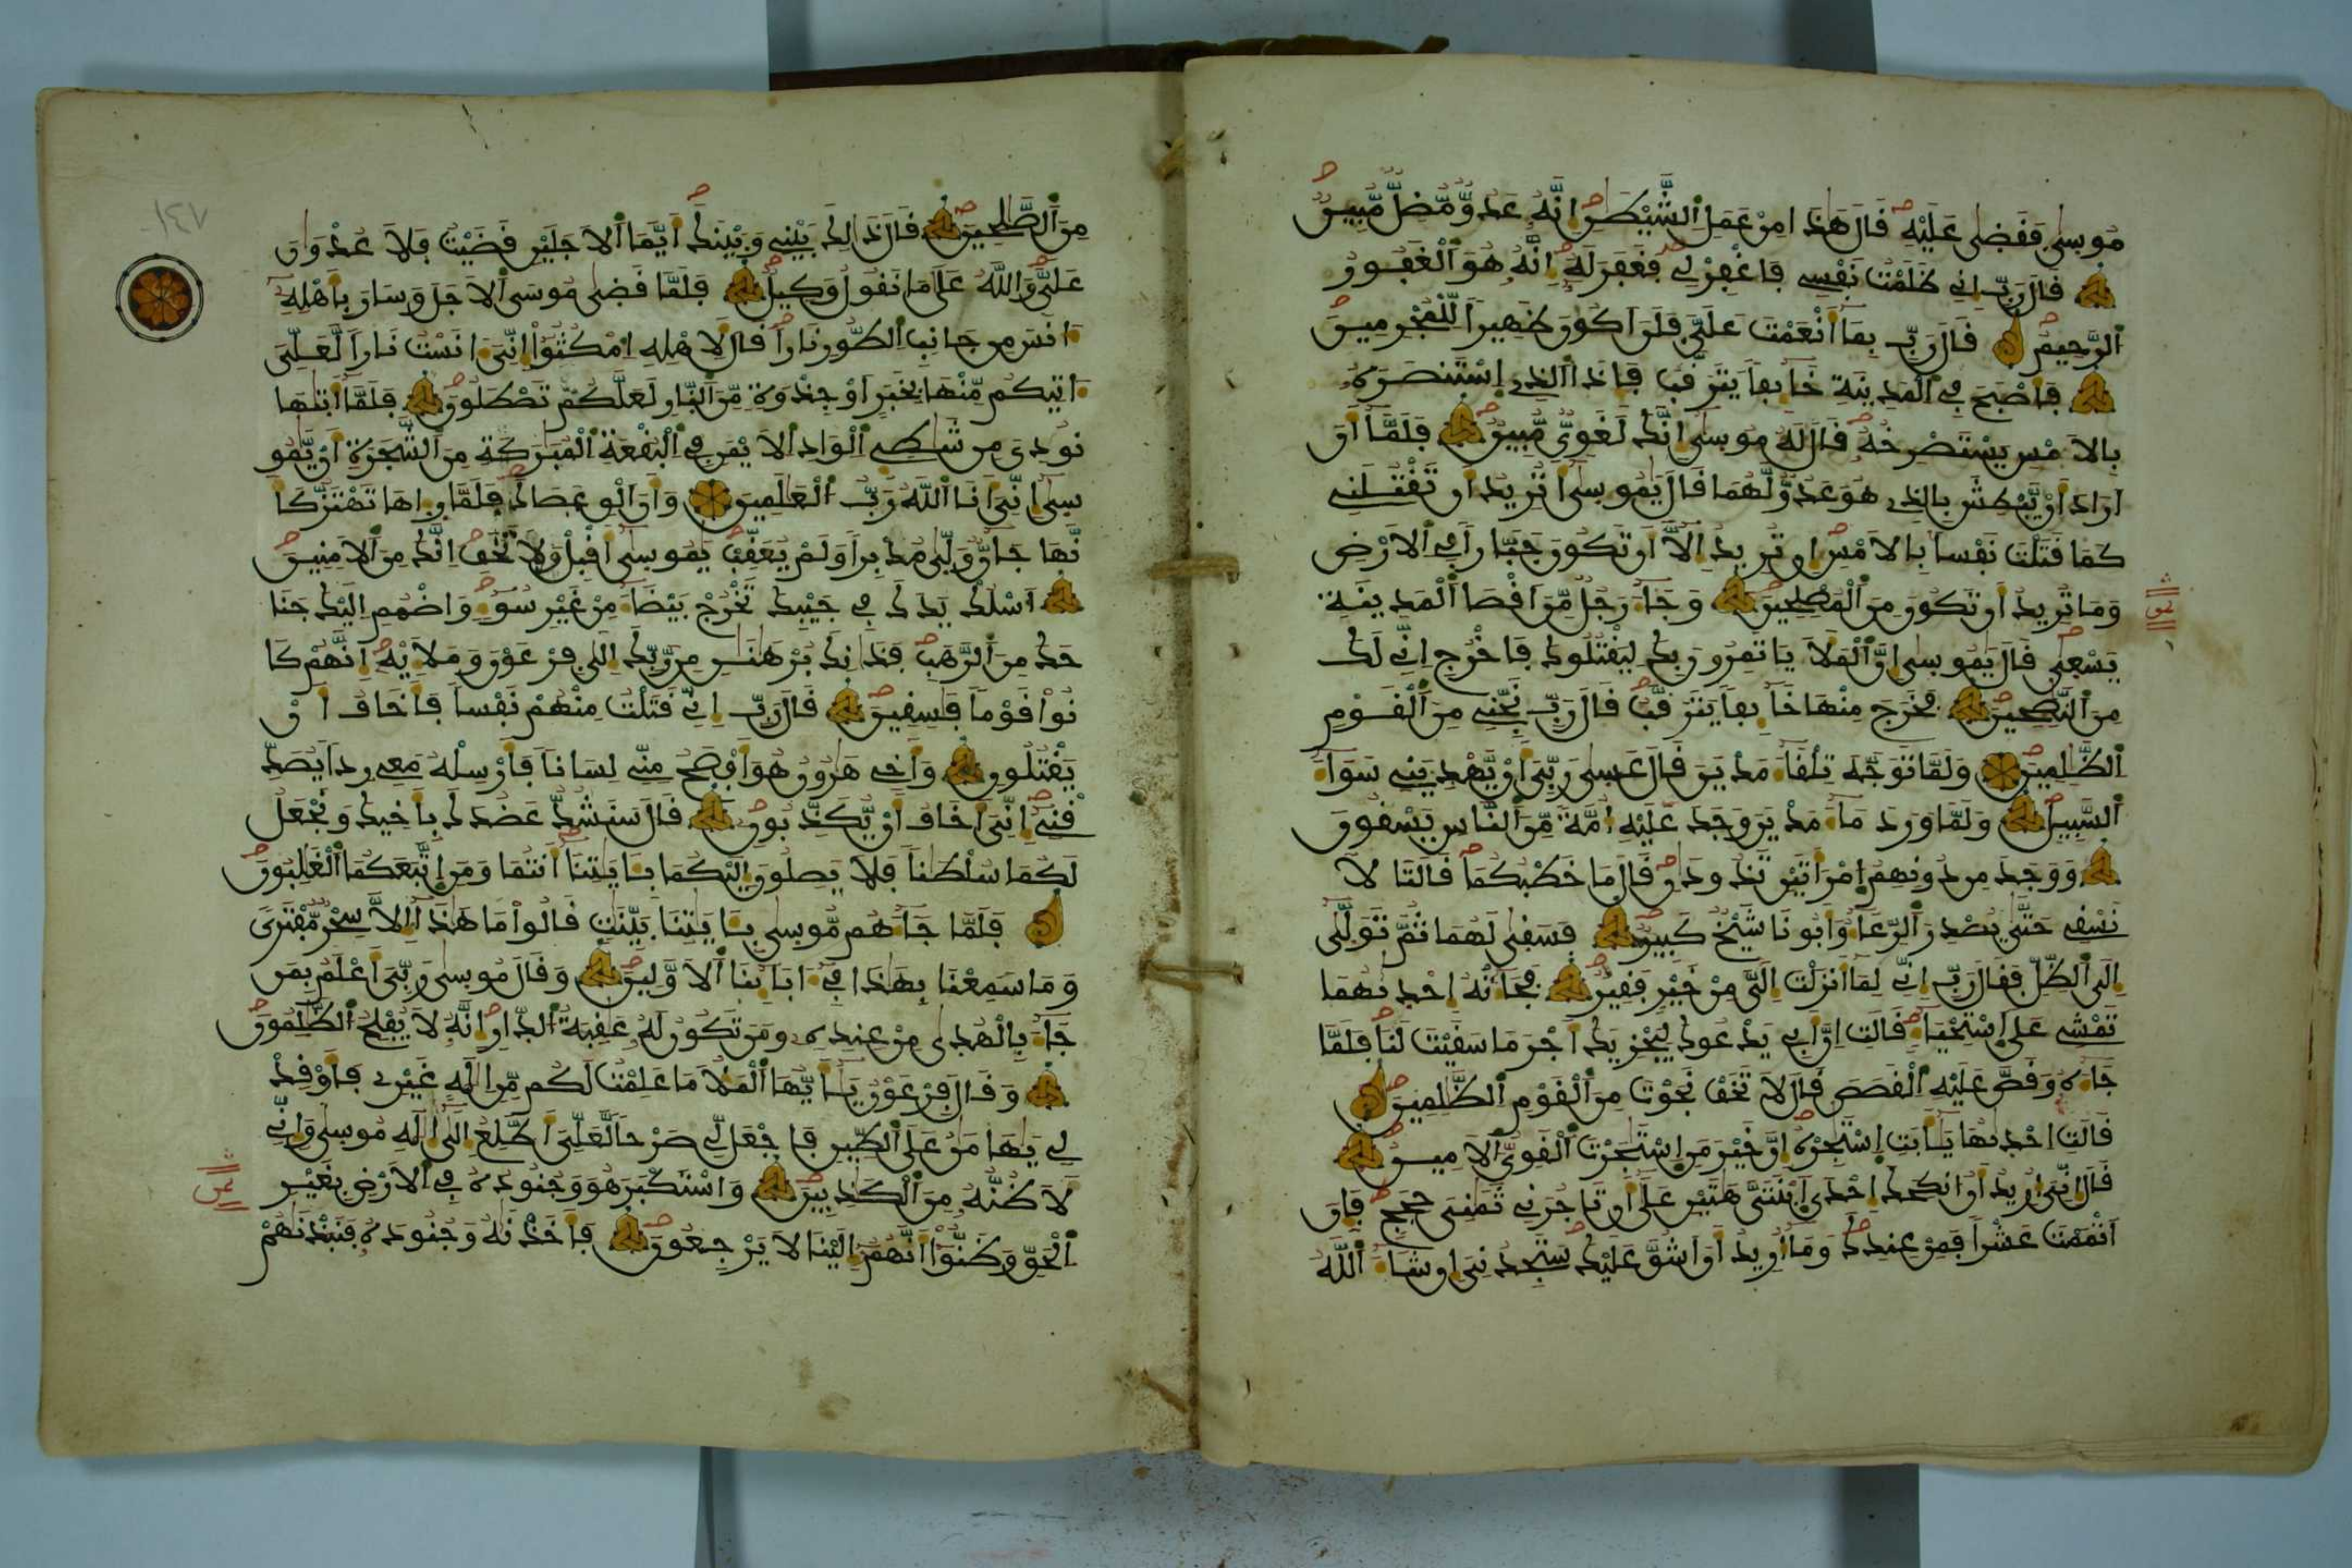 مُوسىٰ فَقَضىٰ عَلَيْهِ قَالَ هَٰذَا مِنْ عَمَلِ اِ۬لشَّيْطَٰنِ إِنَّهُۥ عَدُوّٞ مُّضِلّٞ مُّبِينٞ
قَالَ رَبِّ إِنِّي ظَلَمْتُ نَفْسِي فَاغْفِرْ لِي فَغَفَرَ لَهُۥ إِنَّهُۥ هُوَ اَ۬لْغَفُورُ
اُ۬لرَّحِيمُ قَالَ رَبِّ بِمَا أَنْعَمْتَ عَلَيَّ فَلَنَ اَكُونَ ظَهِيراً لِّلْمُجْرِمِينَ
فَأَصْبَحَ فِي اِ۬لْمَدِينَةِ خَائِفاً يَتَرَقَّبُ فَإِذَا اَ۬لذِي اِ۪سْتَنصَرَهُۥ
بِالَامْسِ يَسْتَصْرِخُهُۥ قَالَ لَهُۥ مُوسىٰ إِنَّكَ لَغَوِيّٞ مُّبِينٞ فَلَمَّا أَنَ
اَرَادَ أَنْ يَّبْطِشَ بِالذِي هُوَ عَدُوّٞ لَّهُمَا قَالَ يَٰمُوسىٰ أَتُرِيدُ أَن تَقْتُلَنِي
كَمَا قَتَلْتَ نَفْساً بِالَامْسِ إِن تُرِيدُ إِلَّا أَن تَكُونَ جَبَّاراً فِي اِ۬لَارْضِ
وَمَا تُرِيدُ أَن تَكُونَ مِنَ اَ۬لْمُصْلِحِينَ وَجَاءَ رَجُلٞ مِّنَ اَقْصَا اَ۬لْمَدِينَةِ
يَسْعىٰ قَالَ يَٰمُوسىٰ إِنَّ اَ۬لْمَلَأَ يَاتَمِرُونَ بِكَ لِيَقْتُلُوكَ فَاخْرُجِ اِنِّي لَكَ
مِنَ اَ۬لنَّٰصِحِينَ فَخَرَجَ مِنْهَا خَائِفاً يَتَرَقَّبُ قَالَ رَبِّ نَجِّنِي مِنَ اَ۬لْقَوْمِ
اِ۬لظَّٰلِمِينَ وَلَمَّا تَوَجَّهَ تِلْقَاءَ مَدْيَنَ قَالَ عَسىٰ رَبِّيَ أَنْ يَّهْدِيَنِي سَوَاءَ
اَ۬لسَّبِيلِ وَلَمَّا وَرَدَ مَاءَ مَدْيَنَ وَجَدَ عَلَيْهِ أُمَّةٗ مِّنَ اَ۬لنَّاسِ يَسْقُونَ
وَوَجَدَ مِن دُونِهِمُ اُ۪مْرَأَتَيْنِ تَذُودَانِ قَالَ مَا خَطْبُكُمَا قَالَتَا لَا
نَسْقِي حَتَّىٰ يُصْدِرَ اَ۬لرِّعَاءُ وَأَبُونَا شَيْخٞ كَبِيرٞ فَسَقىٰ لَهُمَا ثُمَّ تَوَلَّىٰ
إِلَى اَ۬لظِّلِّ فَقَالَ رَبِّ إِنِّي لِمَا أَنزَلْتَ إِلَيَّ مِنْ خَيْرٖ فَقِيرٞ فَجَاءَتْهُ إِحْدٜىٰهُمَا
تَمْشِي عَلَى اَ۪سْتِحْيَاءٖ قَالَتِ اِنَّ أَبِي يَدْعُوكَ لِيَجْزِيَكَ أَجْرَ مَا سَقَيْتَ لَنَا فَلَمَّا
جَاءَهُۥ وَقَصَّ عَلَيْهِ اِ۬لْقَصَصَ قَالَ لَا تَخَفْ نَجَوْتَ مِنَ اَ۬لْقَوْمِ اِ۬لظَّٰلِمِينَ
قَالَتِ اِحْدٜىٰهُمَا يَٰأَبَتِ اِ۪سْتَٰجِرْهُ إِنَّ خَيْرَ مَنِ اِ۪سْتَٰجَرْتَ اَ۬لْقَوِيُّ اُ۬لَامِينُ
قَالَ إِنِّيَ أُرِيدُ أَنُ اُنكِحَكَ إِحْدَى اَ۪بْنَتَيَّ هَٰتَيْنِ عَلَىٰ أَن تَاجُرَنِي ثَمَٰنِيَ حِجَجٖ فَإِنَ
اَتْمَمْتَ عَشْراً فَمِنْ عِندِكَ وَمَا أُرِيدُ أَنَ اَشُقَّ عَلَيْكَ سَتَجِدُنِيَ إِن شَاءَ اَ۬للَّهُ
ثمن
١٤٧
مِنَ اَ۬لصَّٰلِحِينَ قَالَ ذَٰلِكَ بَيْنِي وَبَيْنَكَ أَيَّمَا اَ۬لَاجَلَيْنِ قَضَيْتُ فَلَا عُدْوَٰنَ
عَلَيَّ وَاللَّهُ عَلَىٰ مَا نَقُولُ وَكِيلٞ فَلَمَّا قَضىٰ مُوسَى اَ۬لَاجَلَ وَسَارَ بِأَهْلِهِۦ
ءَانَسَ مِن جَانِبِ اِ۬لطُّورِ نَاراً قَالَ لِأَهْلِهِ اِ۟مْكُثُوٓاْ إِنِّيَ ءَانَسْتُ نَاراً لَّعَلِّيَ
ءَاتِيكُم مِّنْهَا بِخَبَرٍ اَوْ جِذْوَةٖ مِّنَ اَ۬لنَّارِ لَعَلَّكُمْ تَصْطَلُونَ فَلَمَّا أَتٜىٰهَا
نُودِيَ مِن شَٰطِئِ اِ۬لْوَادِ اِ۬لَايْمَنِ فِي اِ۬لْبُقْعَةِ اِ۬لْمُبَٰرَكَةِ مِنَ اَ۬لشَّجَرَةِ أَنْ يَّٰمُو
سىٰ إِنِّيَ أَنَا اَ۬للَّهُ رَبُّ اُ۬لْعَٰلَمِينَ وَأَنَ اَلْقِ عَصَاكَ فَلَمَّا رءِاهَا تَهْتَزُّ كَأَ
نَّهَا جَانّٞ وَلَّىٰ مُدْبِراً وَلَمْ يُعَقِّبْ يَٰمُوسىٰ أَقْبِلْ وَلَا تَخَفِ اِنَّكَ مِنَ اَ۬لَامِنِينَ
اَ۟سْلُكْ يَدَكَ فِي جَيْبِكَ تَخْرُجْ بَيْضَاءَ مِنْ غَيْرِ سُوءٖ وَاضْمُمِ اِلَيْكَ جَنَا
حَكَ مِنَ اَ۬لرَّهَبِ فَذَٰنِكَ بُرْهَٰنَٰنِ مِن رَّبِّكَ إِلَىٰ فِرْعَوْنَ وَمَلَإِيْهِۦ إِنَّهُمْ كَا
نُواْ قَوْماً فَٰسِقِينَ قَالَ رَبِّ إِنِّي قَتَلْتُ مِنْهُمْ نَفْساً فَأَخَافُ أَنْ
يَّقْتُلُونِ وَأَخِي هَٰرُونُ هُوَ أَفْصَحُ مِنِّي لِسَاناً فَأَرْسِلْهُ مَعِي رِداً يُصَدِّ
قْنِي إِنِّيَ أَخَافُ أَنْ يُّكَذِّبُونِ قَالَ سَنَشُدُّ عَضُدَكَ بِأَخِيكَ وَنَجْعَلُ
لَكُمَا سُلْطَٰناً فَلَا يَصِلُونَ إِلَيْكُمَا بِـَٔايَٰتِنَا أَنتُمَا وَمَنِ اِ۪تَّبَعَكُمَا اَ۬لْغَٰلِبُونَ
فَلَمَّا جَاءَهُم مُّوسىٰ بِـَٔايَٰتِنَا بَيِّنَٰتٖ قَالُواْ مَا هَٰذَا إِلَّا سِحْرٞ مُّفْتَرىٗ
وَمَا سَمِعْنَا بِهَٰذَا فِي ءَابَائِنَا اَ۬لَاوَّلِينَ وَقَالَ مُوسىٰ رَبِّيَ أَعْلَمُ بِمَن
جَاءَ بِالْهُدىٰ مِنْ عِندِهِۦ وَمَن تَكُونُ لَهُۥ عَٰقِبَةُ اُ۬لدّارِ إِنَّهُۥ لَا يُفْلِحُ اُ۬لظَّٰلِمُونَ
وَقَالَ فِرْعَوْنُ يَٰأَيُّهَا اَ۬لْمَلَأُ مَا عَلِمْتُ لَكُم مِّنِ اِلَٰهٍ غَيْرِي فَأَوْقِدْ
لِي يَٰهَٰمَٰنُ عَلَى اَ۬لطِّينِ فَاجْعَل لِّي صَرْحاً لَّعَلِّيَ أَطَّلِعُ إِلَىٰ إِلَٰهِ مُوسىٰ وَإِنِّي
لَأَظُنُّهُۥ مِنَ اَ۬لْكَٰذِبِينَ وَاسْتَكْبَرَ هُوَ وَجُنُودُهُۥ فِي اِ۬لَارْضِ بِغَيْرِ
اِ۬لْحَقِّ وَظَنُّواْ أَنَّهُمُ إِلَيْنَا لَا يَرْجِعُونَ فَأَخَذْنَٰهُ وَجُنُودَهُۥ فَنَبَذْنَٰهُمْ
ثمن